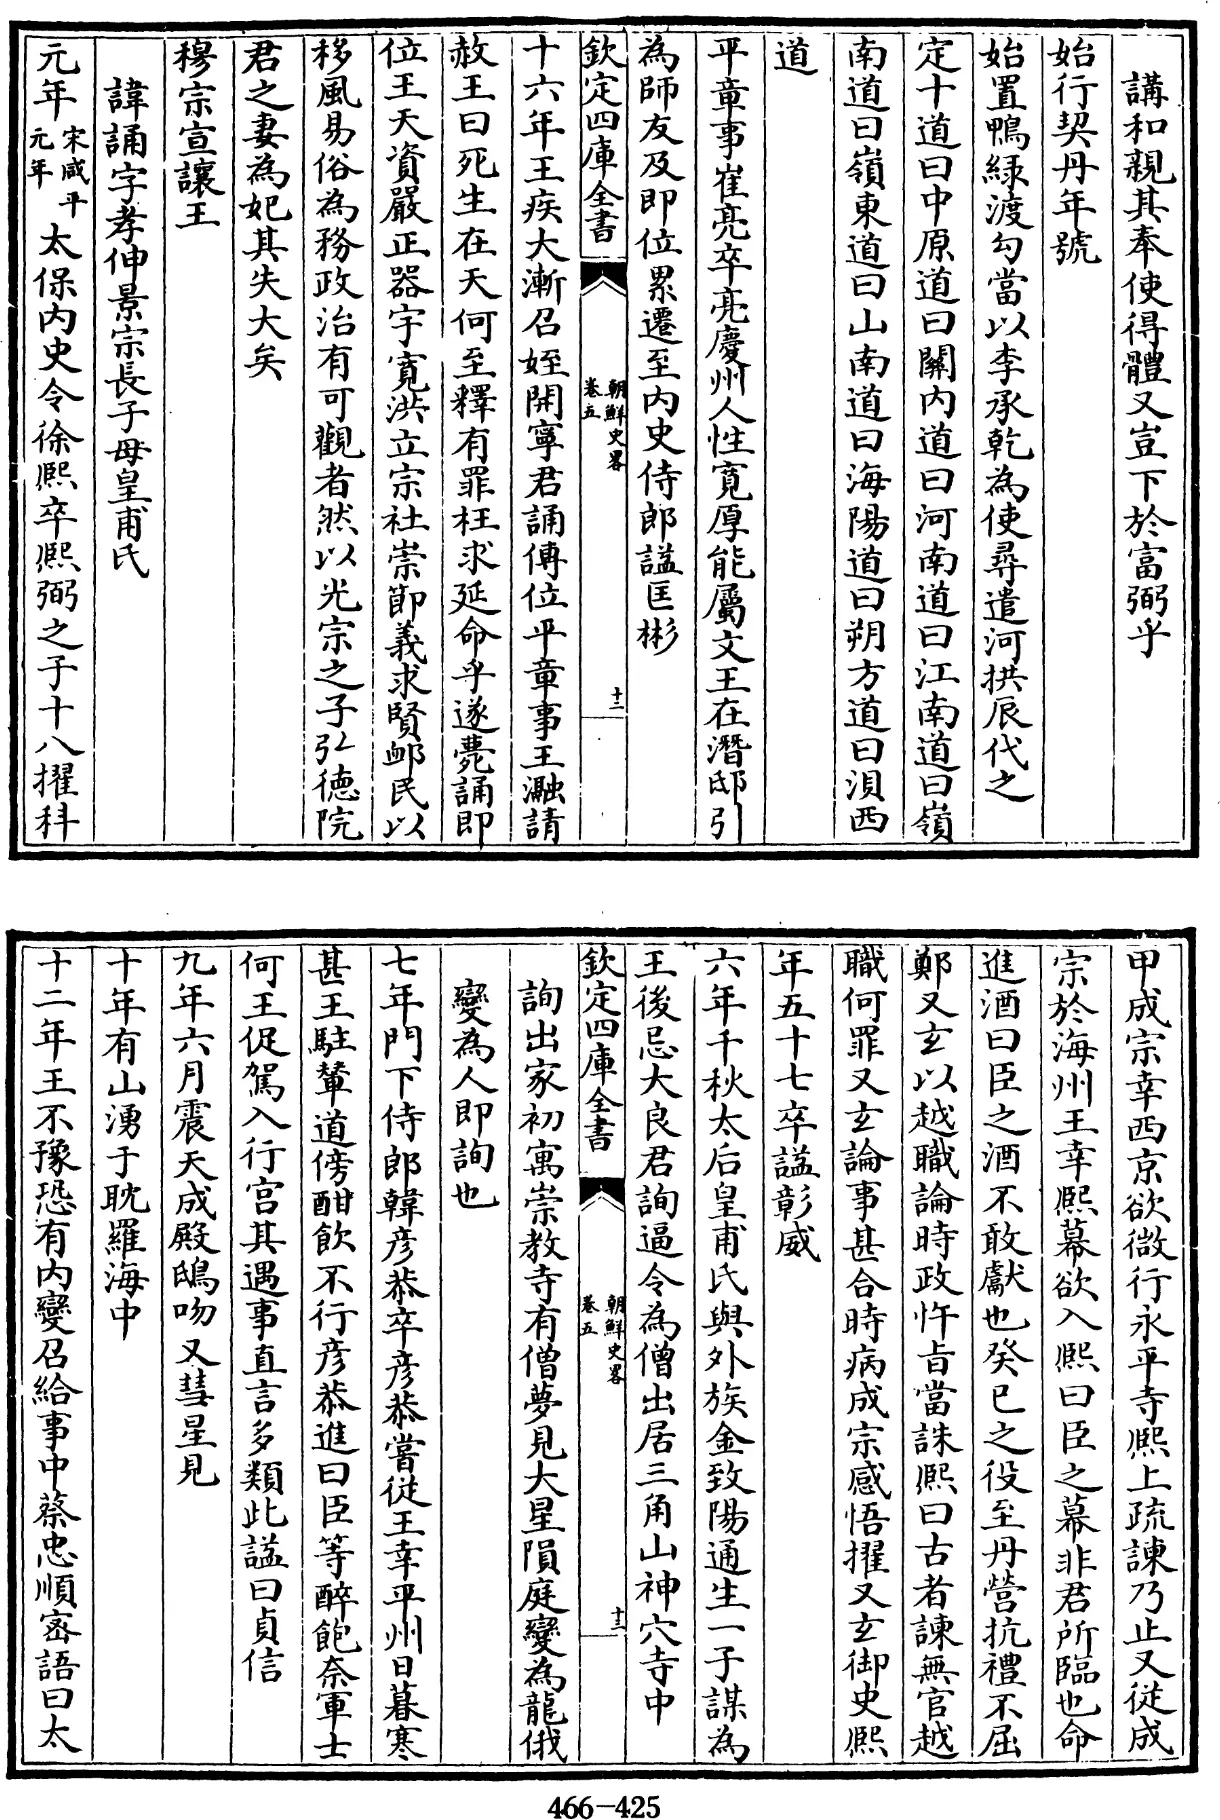 講和親其奉使得體又豈下於富弼乎
始行契丹年號
始置鴨綠渡勾當以李承乾為使尋遣河拱辰代之
定十道曰中原道曰關內道曰河南道曰江南道曰嶺
南道曰嶺東道曰山南道曰海陽道曰朔方道曰浿西
道
平章事崔亮卒亮慶州人性寬厚能屬文王在潛邸引
為師友及即位累遷至內史侍郎諡匡彬
欽定四庫全書
朝鮮史畧
卷五
十二
十六年王疾大漸召姪開寧君誦傳位平章事王瀜請
赦王曰死生在天何至釋有罪枉求延命乎遂薨誦即
位王天資嚴正器宇寬洪立宗社崇節義求賢恤民以
移風易俗為務政治有可觀者然以光宗之子弘德院
君之妻為妃其失大矣
穆宗宣讓王
諱誦字孝伸景宗長子母皇甫氏
元年宋咸平元年太保內史令徐熙卒熙弼之子十八擢科
甲成宗幸西京欲微行永平寺熙上疏諫乃止又從成
宗於海州王幸熙幕欲入熙曰臣之幕非君所臨也命
進酒曰臣之酒不敢獻也癸巳之役至丹營抗禮不屈
鄭又玄以越職論時政忤旨當誅熙曰古者諫無官越
職何罪又玄論事甚合時病成宗感悟擢又玄御史熙
年五十七卒諡彰威
六年千秋太后皇甫氏與外族金致陽通生一子謀為
王後忌大良君詢逼令為僧出居三角山神穴寺中
欽定四庫全書
朝鮮史畧
卷五
十三
詢出家初寓崇教寺有僧夢見大星隕庭變為龍俄
變為人即詢也
七年門下侍郎韓彦恭卒彦恭嘗從王幸平州日暮寒
甚王駐輦道傍酣飲不行彦恭進曰臣等醉飽奈軍士
何王促駕入行宮其遇事直言多類此諡曰貞信
九年六月震天成殿鴟吻又彗星見
十年有山湧于耽羅海中
十二年王不豫恐有內變召給事中蔡忠順密語曰太
466-425